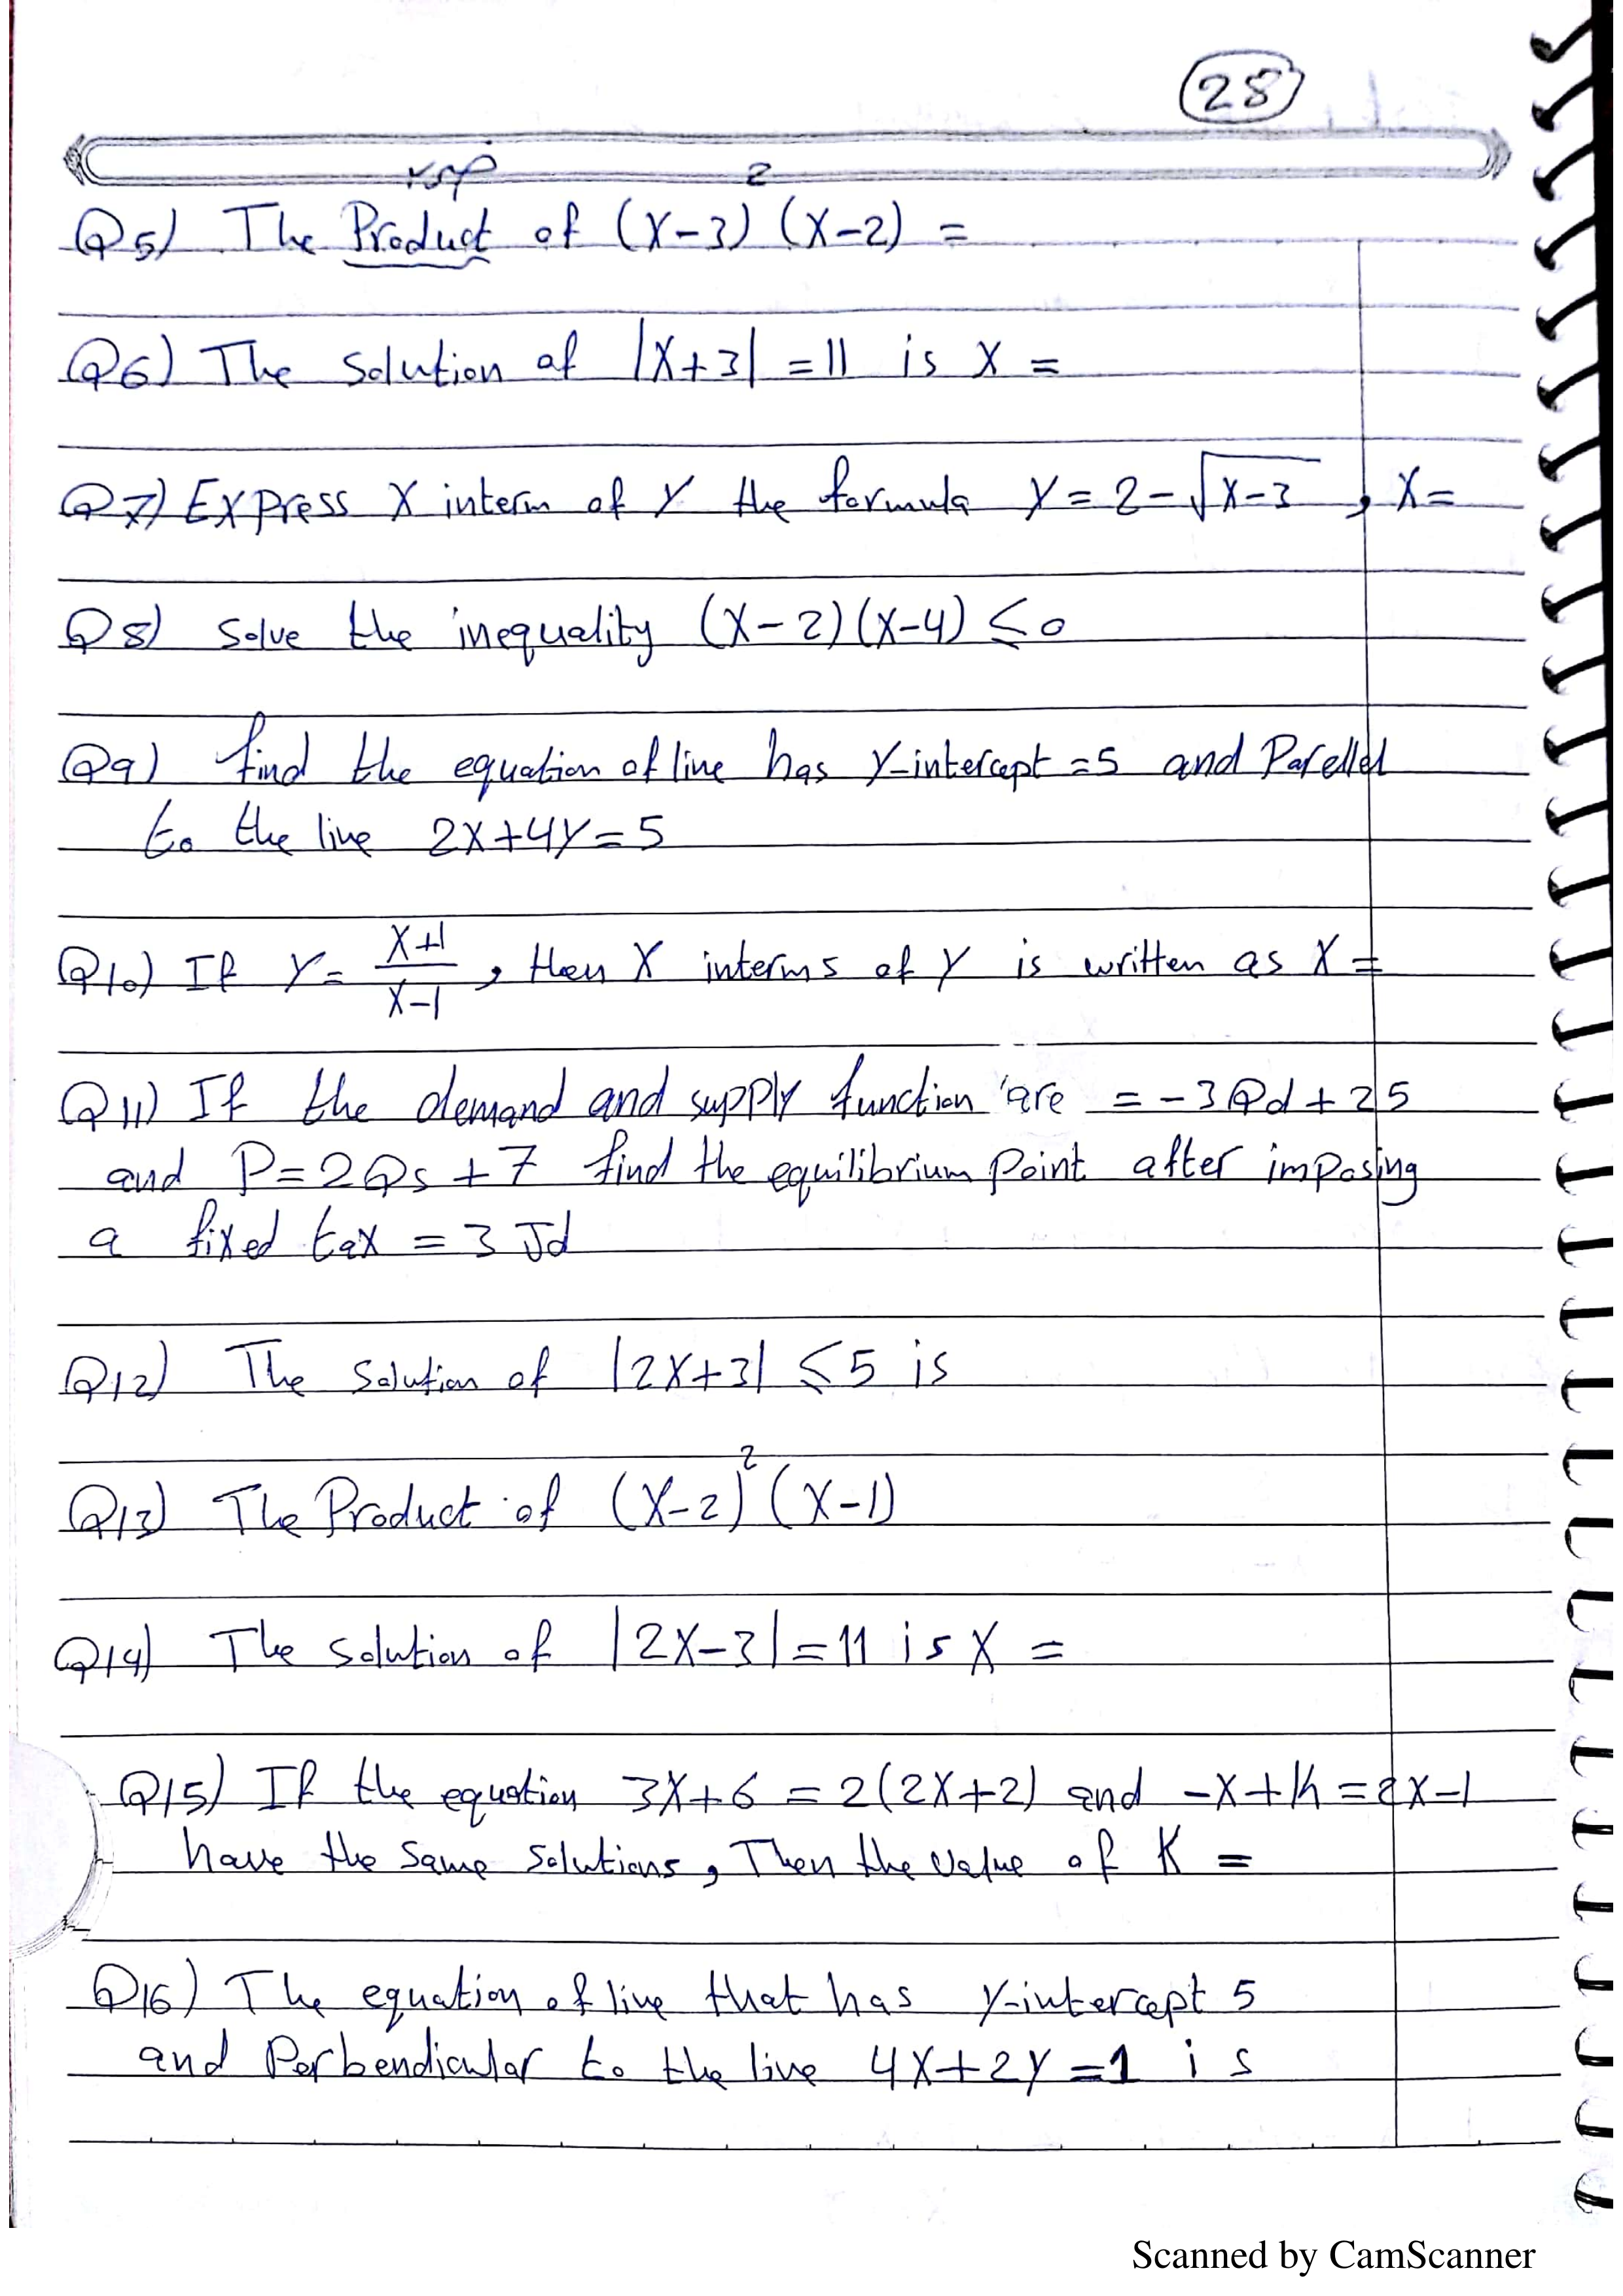 28
Q5) The Product of (X-3)² (X-2) =
Q6) The Solution of |X+3| = 11 is X =
Q7) Express X interm of Y the formula Y = 2 - √X-3 , X =
Q8) Solve the inequality (X-2)(X-4) ≤ 0
Q9) find the equation of line has Y-intercept = 5 and Parellel
to the line 2X+4Y = 5
Q10) If Y = X+1/X-1 , then X interms of Y is written as X =
Q11) If the demand and supply function are = -3Qd + 25
and P = 2Qs + 7 find the equilibrium Point after imposing
a fixed tax = 3 Jd
Q12) The Solution of |2X+3| ≤ 5 is
Q13) The Product of (X-2)² (X-1)
Q14) The solution of |2X-3| = 11 is X =
Q15) If the equation 3X+6 = 2(2X+2) and -X+K = 2X-1
have the same solutions, Then the value of K =
Q16) The equation of line that has Y-intercept 5
and Perbendicular to the line 4X+2Y = 1 is
Scanned by CamScanner